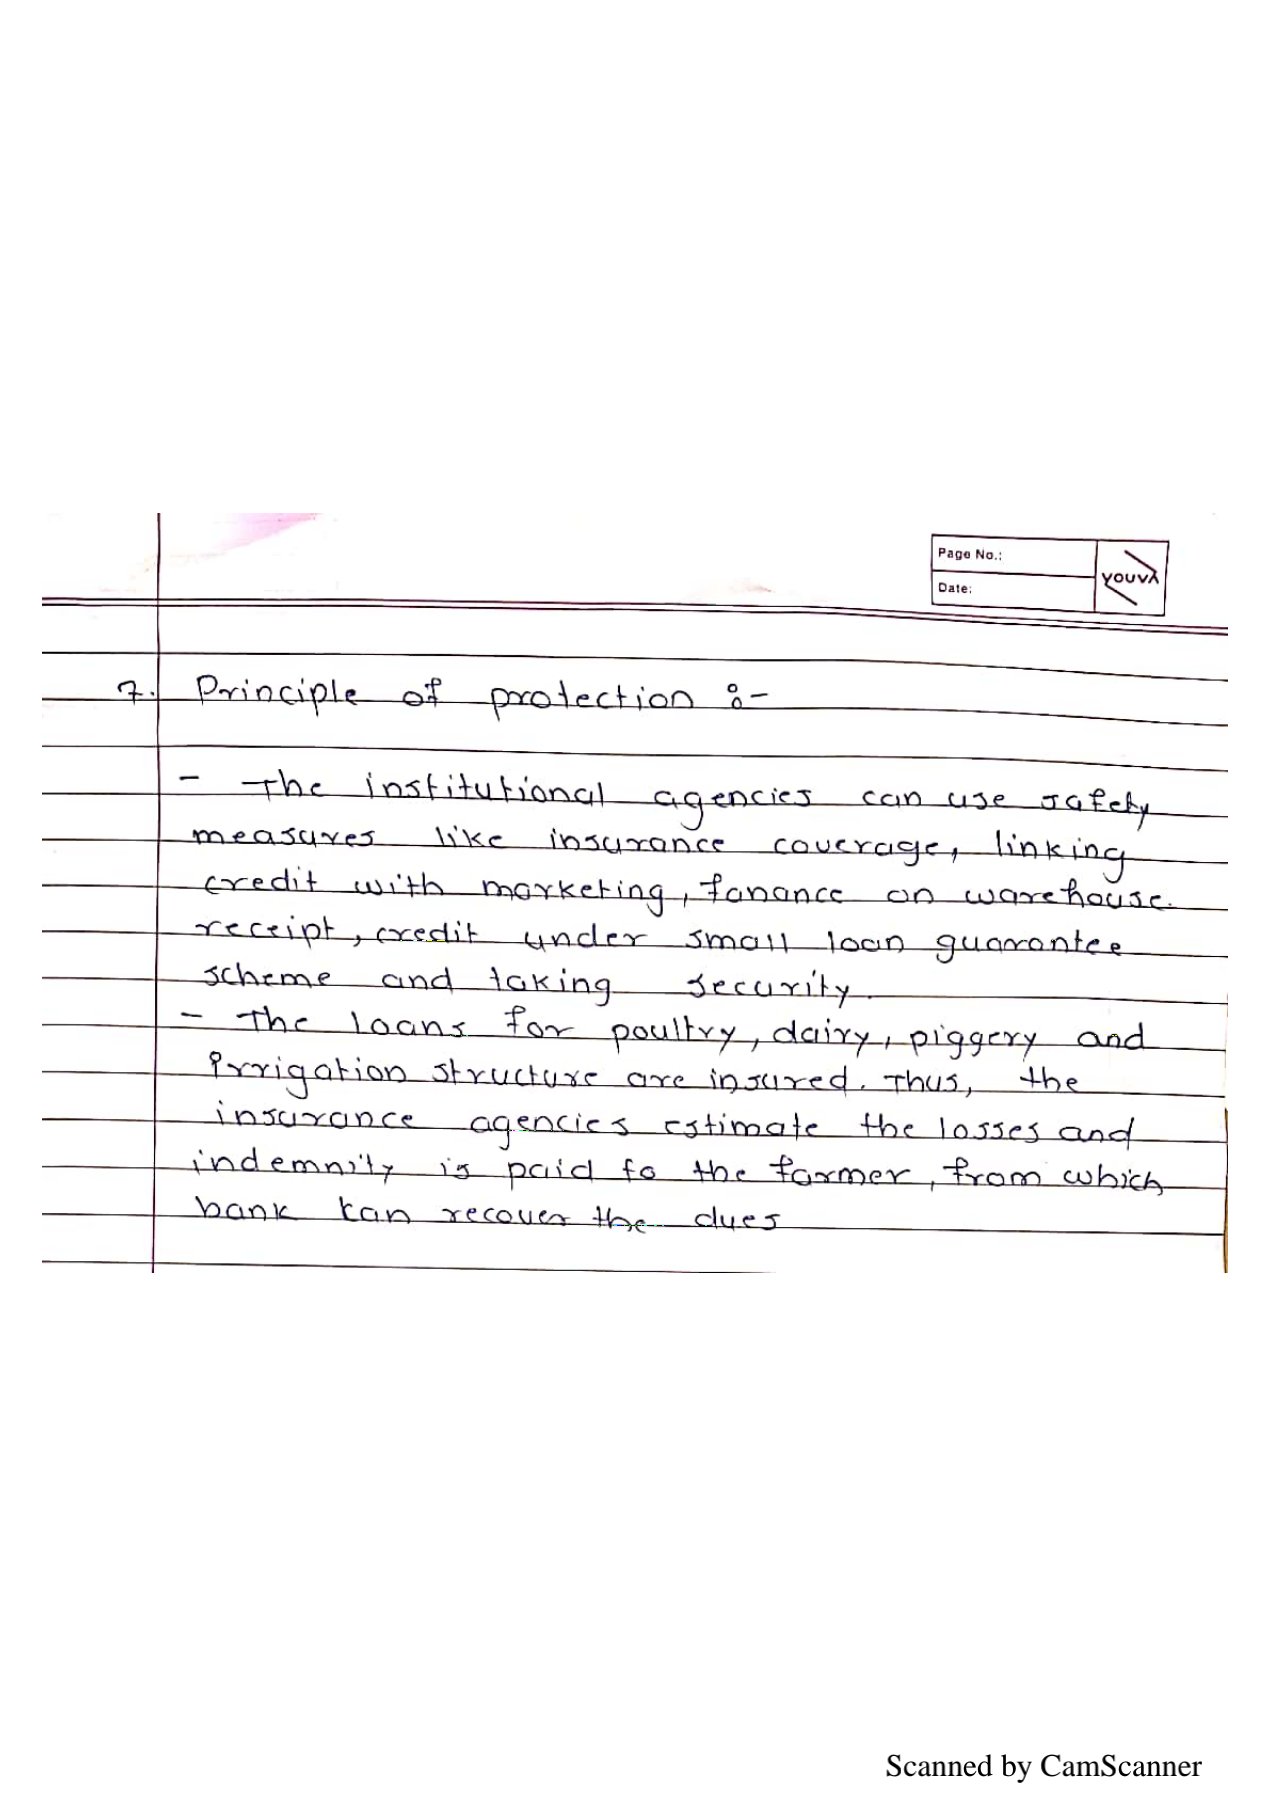 Page No.:
Date:
YOUVA
7. Principle of protection :-
- The institutional agencies can use safety
measures like insurance coverage, linking
credit with marketing, fanance on warehouse.
receipt, credit under small loan guarantee
scheme and taking security.
- The loans for poultry, dairy, piggery and
Irrigation structure are insured. Thus, the
insurance agencies estimate the losses and
indemnity is paid to the farmer, from which
bank kan recover the dues
Scanned by CamScanner